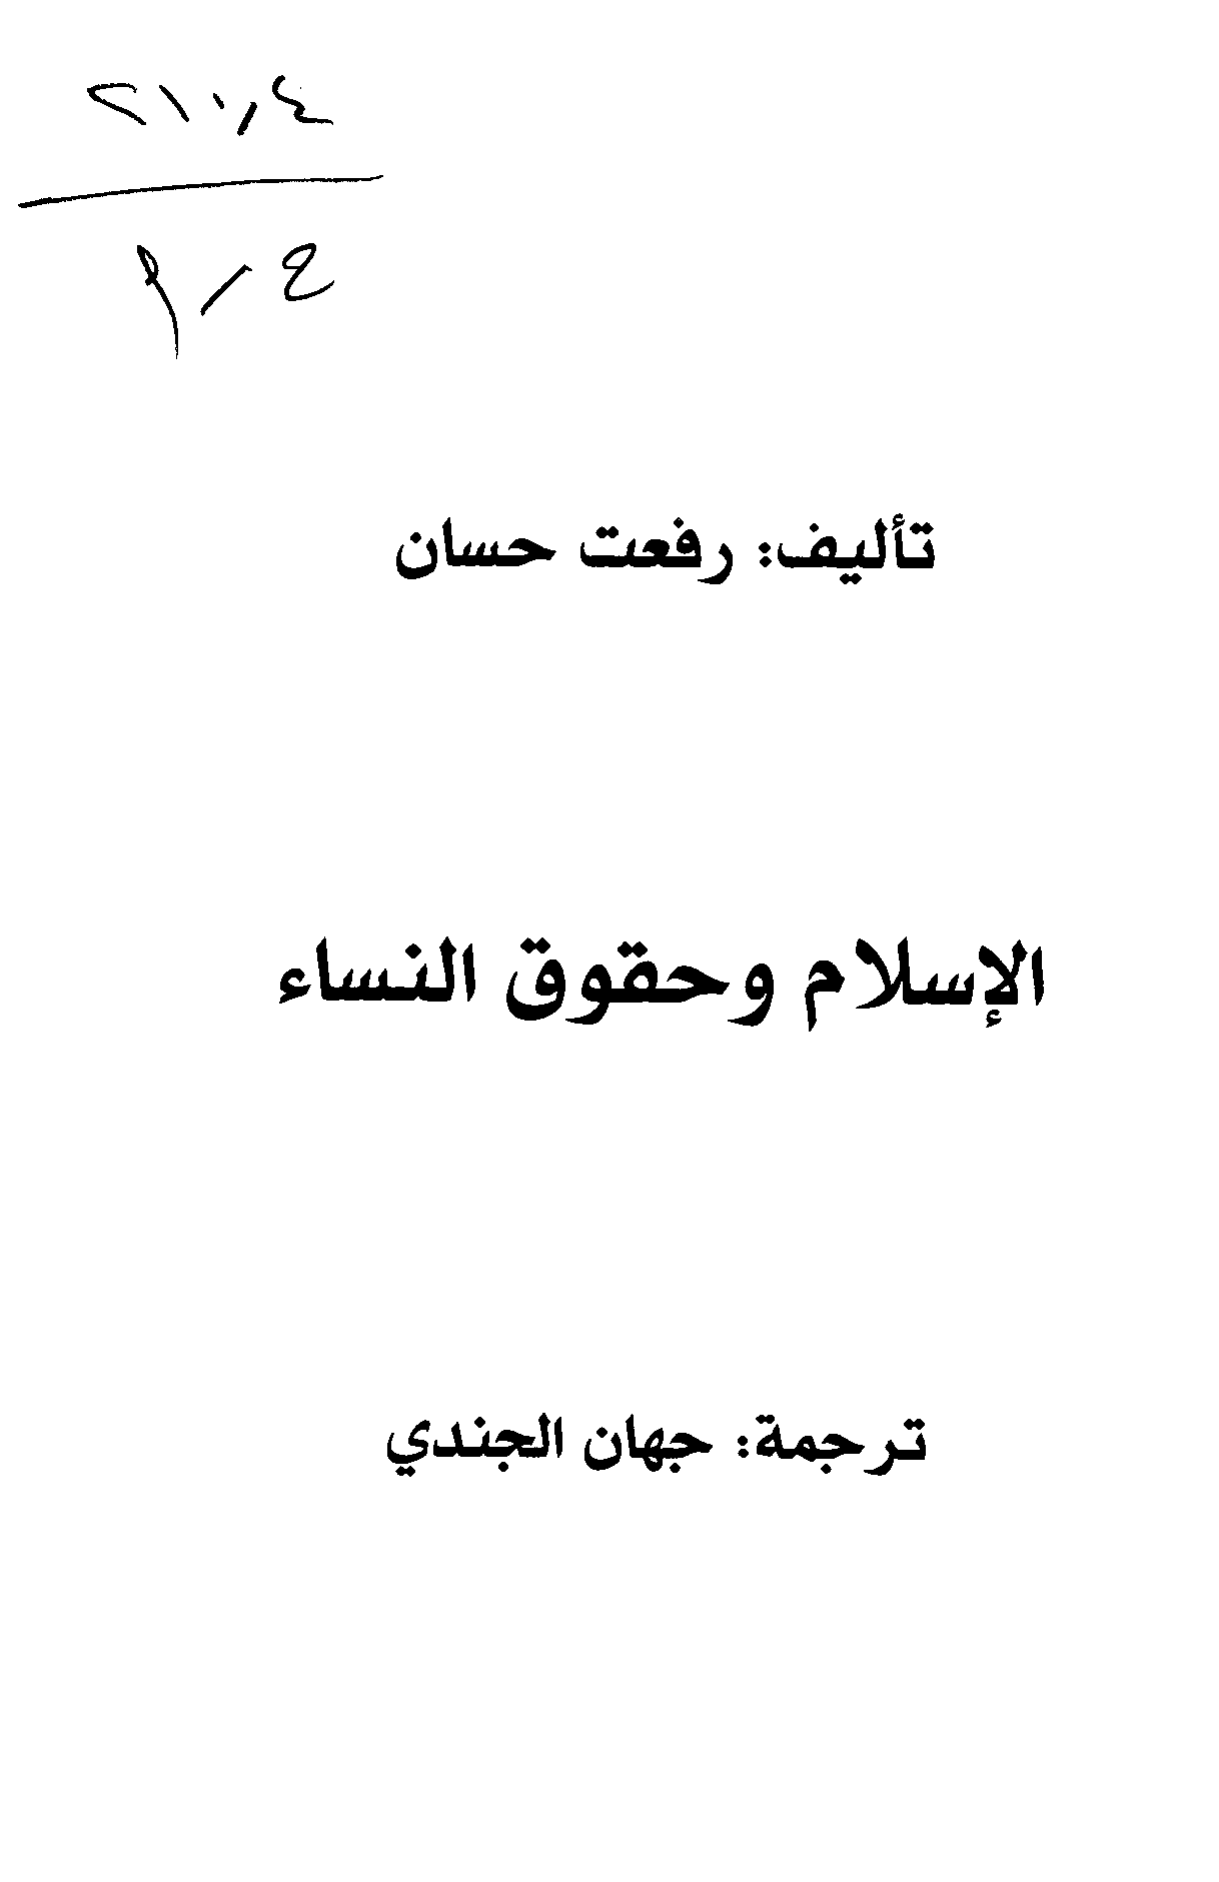 تأليف: رفعت حسان
الإسلام وحقوق النساء
ترجمة: جهان الجندي